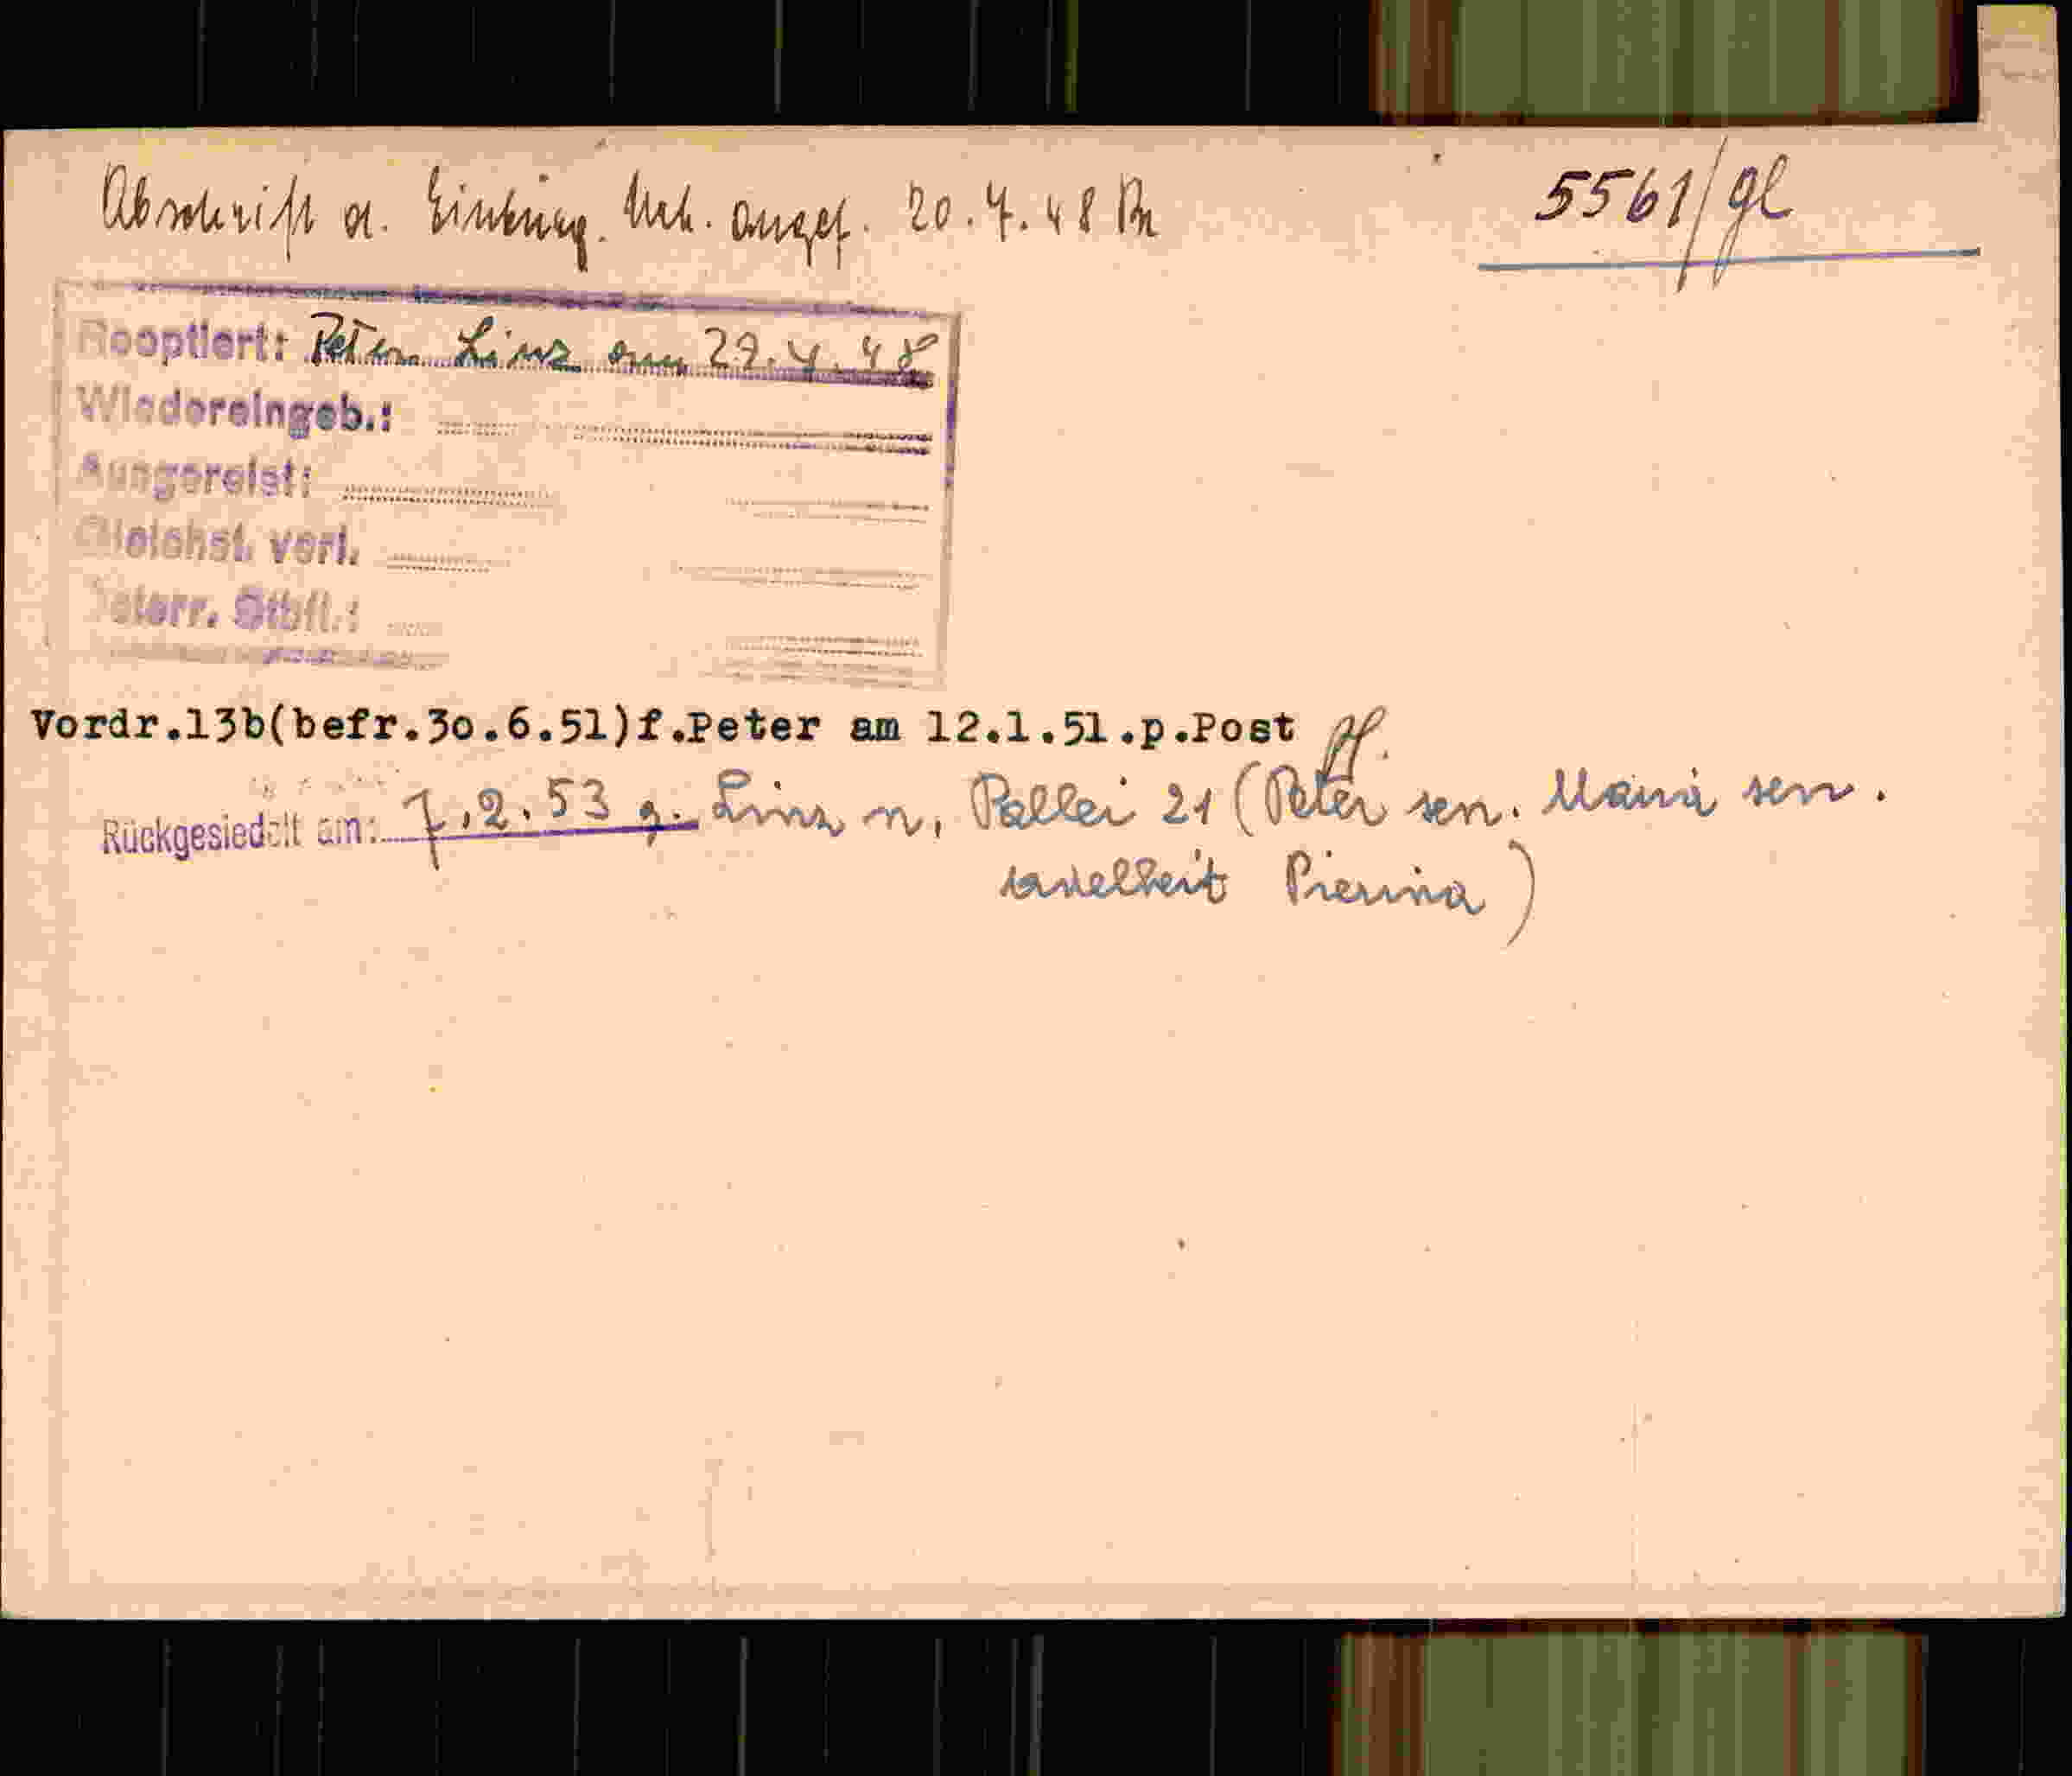 Abschrift d. Einbürg. Urk. angef. 20.7.48 Pr
5561/gl
Reoptiert: Peter Linz am 29.4.48
Wiedereingeb.:
Ausgereist:
Gleichst. verl.
Österr. Stbft.:
Vordr.13b(befr.30.6.51)f.Peter am 12.1.51.p.Post
Rückgesiedelt am: 7.2.53 g. Linz n. Pallei 21 (Peter sen. Maria sen.
Adelheit Pierina)